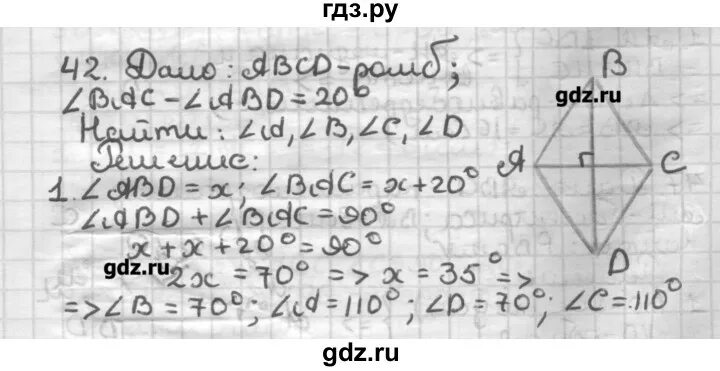 гдз.ру
42. Дано: ABCD-ромб;
∠BAC - ∠ABD = 20°
Найти: ∠A, ∠B, ∠C, ∠D
Решение:
1. ∠ABD = x; ∠BAC = x+20°
∠ABD + ∠BAC = 90°
x + x + 20° = 90°
2x = 70° => x = 35° =>
=> ∠B = 70°; ∠A = 110°; ∠D = 70°; ∠C = 110°
B
gdz.ru
A
C
D
gdz.ru
gdz.ru